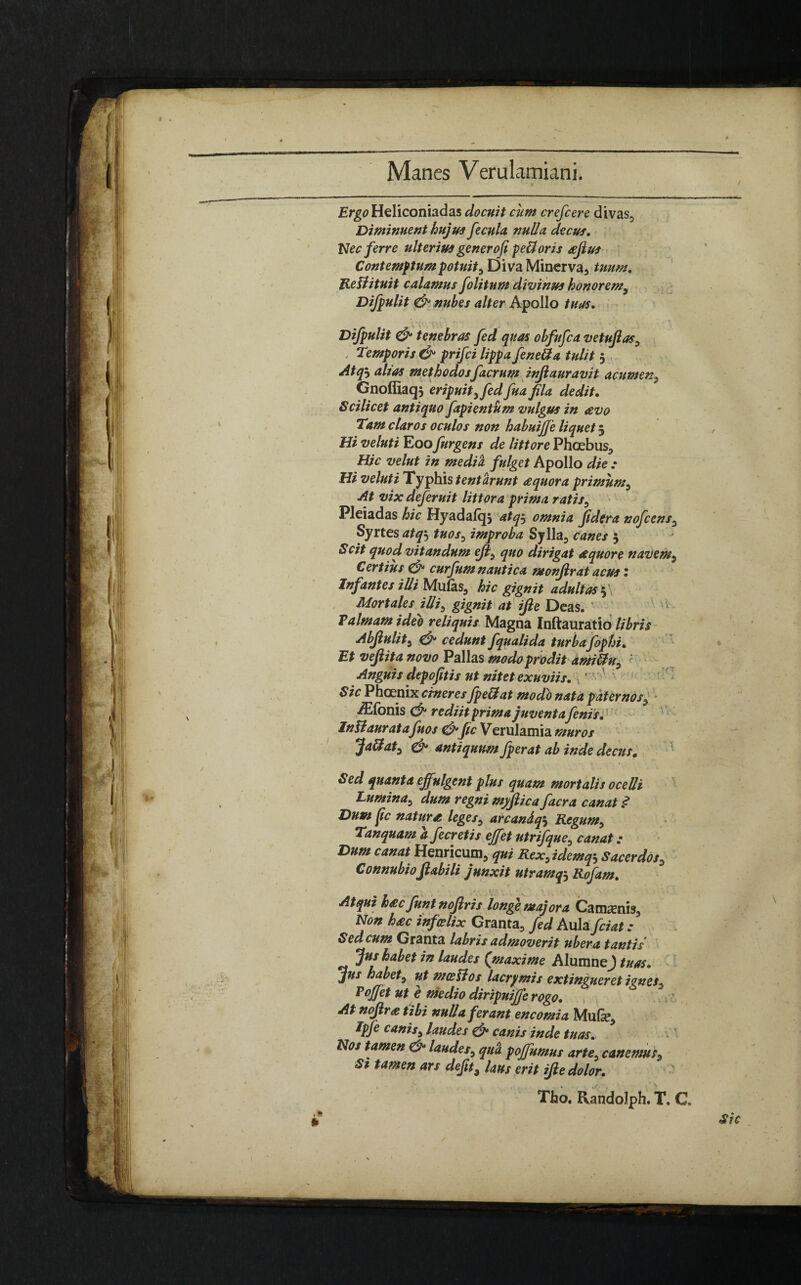 Manes Verulamiani.
Ergo Heliconiadas docuit cùm creſcere divas,
Diminuent hujus ſecula nulla decus.
Nec ferre ulterius generoſi pectoris æſtus
Contemptum potuit, Diva Minerva, tuum.
Reſtituit calamus ſolitum divinus honorem,
Diſpulit & nubes alter Apollo tuas.
Diſpulit & tenebras ſed quas obfuſca vetuſtas,
Temporis & priſci lippa ſenecta tulit;
Atq; alias methodos ſacrum inſtauravit acumen,
Gnoſſiaq; eripuit, ſed ſua fila dedit.
Scilicet antiquo ſapientûm vulgus in ævo
Tam claros oculos non habuiſſe liquet;
Hi veluti Eoo ſurgens de littore Phœbus,
Hic velut in mediâ fulget Apollo die:
Hi veluti Typhis tentârunt æquora primùm,
At vix deſeruit littora prima ratis,
Pleiadas hic Hyadaſq; atq; omnia ſidera noſcens,
Syrtes atq; tuos, improba Sylla, canes;
Scit quod vitandum eſt, quo dirigat æquore navem,
Certiùs & curſum nautica monſtrat acus:
Infantes illi Muſas, hic gignit adultas;
Mortales illi, gignit at iſte Deas.
Palmam ideò reliquis Magna Inſtauratio libris
Abſtulit, & cedunt ſqualida turba ſophi.
Et veſtita novo Pallas modo prodit amictu,
Anguis depoſitis ut nitet exuviis.
Sic Phœnix cineres ſpectat modò nata paternos,
Æſonis & rediit prima juventa ſenis.
Inſtaurata ſuos & ſic Verulamia muros
Jactat, & antiquum ſperat ab inde decus.
Sed quanta effulgent plus quam mortalis ocelli
Lumina, dum regni myſtica ſacra canat?
Dum ſic naturæ leges, arcanáq; Regum,
Tanquam à ſecretis eſſet utriſque, canat:
Dum canat Henricum, qui Rex, idemq; Sacerdos,
Connubio ſtabili junxit utramq; Roſam.
Atqui hæc ſunt noſtris longè majora Camænis,
Non hæc infœlix Granta, ſed Aula ſciat:
Sed cum Granta labris admoverit ubera tantis
Jus habet in laudes (maxime Alumne) tuas.
Jus habet, ut mœſtos lacrymis extingueret ignes,
Poſſet ut è medio diripuiſſe rogo.
At noſtræ tibi nulla ferant encomia Muſæ,
Ipſe canis, laudes & canis inde tuas.
Nos tamen & laudes, quâ poſſumus arte, canemus,
Si tamen ars deſit, laus erit iſte dolor.
Tho. Randolph. T. C.
Sic